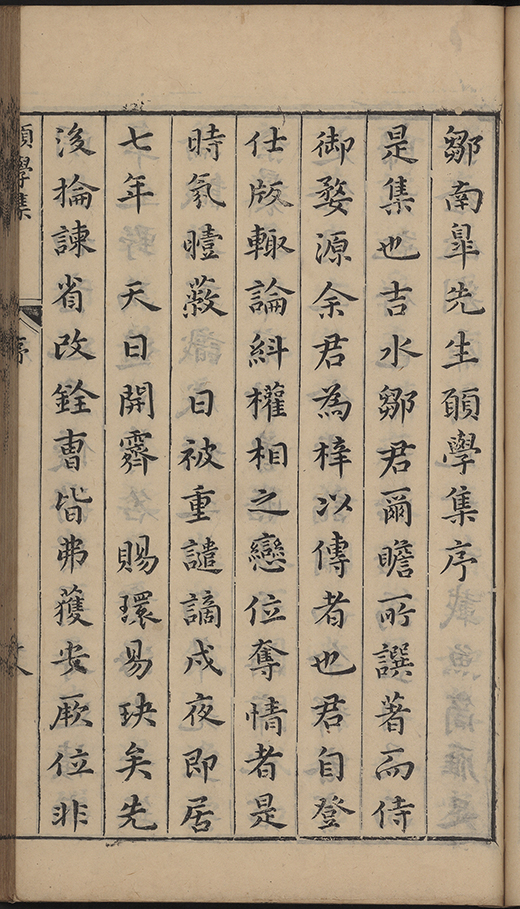 鄒南臯先生願學集序
是集也吉水鄒君爾瞻所譔著而侍
御婺源余君為梓以傳者也君自登
仕版輙論糾權相之戀位奪情者是
時氛曀蔽　日被重譴謫戍夜郎居
七年　天日開霽　賜環易玦矣先
後掄諫省改銓曹皆弗獲安厥位非
願學集
序